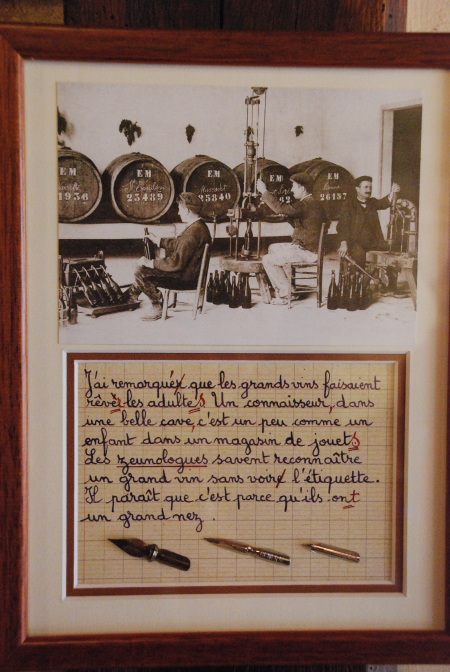 EM EM EM EM
1936 23489 35840 26137
J'ai remarqué que les grands vins faisaient
les adultes. Un connaisseur, dans
une belle cave, c'est un peu comme un
enfant dans un magasin de jouets
Les zeunologues savent reconnaître
un grand vin sans voir l'étiquette.
Il paraît que c'est parce qu'ils ont
un grand nez.